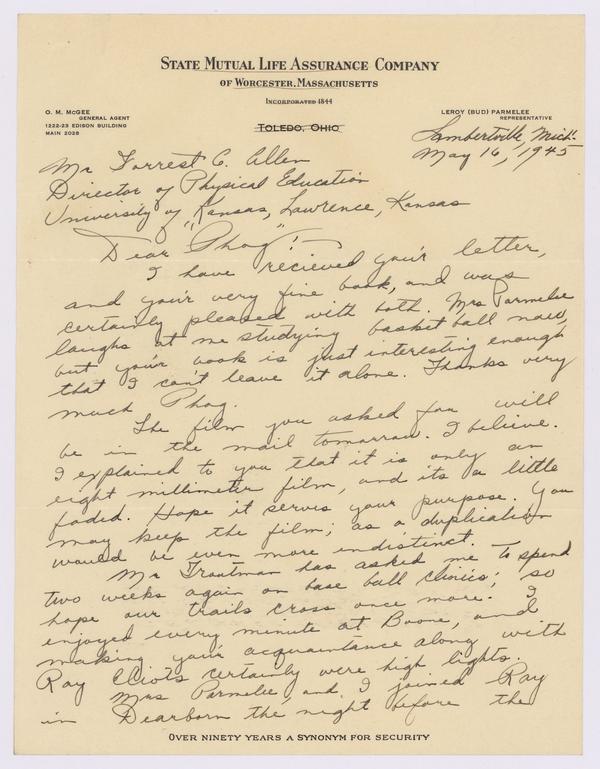 STATE MUTUAL LIFE ASSURANCE COMPANY
OF WORCESTER, MASSACHUSETTS
INCORPORATED 1844
O. M. McGEE
GENERAL AGENT
1222-23 EDISON BUILDING
MAIN 2028
TOLEDO, OHIO
LEROY (BUD) PARMELEE
REPRESENTATIVE
Lambertville, Mich.
May 16, 1945
Mr Forrest C. Allen
Director of Physical Education
University of Kansas, Lawrence, Kansas
Dear "Phog"! -
I have recieved your letter,
and your very fine book, and was
certainly pleased with both. Mrs Parmelee
laughs at me studying basket ball now,
but your book is just interesting enough
that I can't leave it alone. Thanks very
much Phog.
The film you asked for will
be in the mail tomorrow. I believe.
I explained to you that it is only an
eight millimeter film, and its a little
faded. Hope it serves your purpose. You
may keep the film; as a duplication
would be even more indistinct.
Mr Trautman has asked me to spend
two weeks again on base ball clinics; so
hope our trails cross once more. I
enjoyed every minute at Boone, and
making your acquaintance along with
Ray certainly were high lights.
Mrs Parmelee, and I joined Ray
in Dearborn the night before the
OVER NINETY YEARS A SYNONYM FOR SECURITY